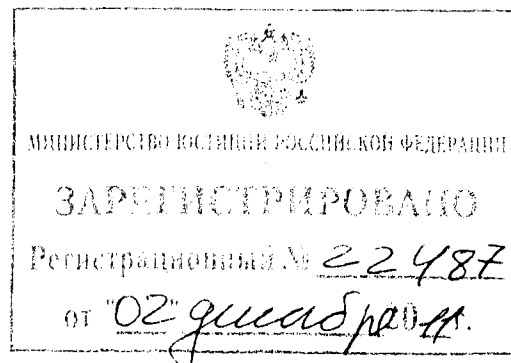 МИНИСТЕРСТВО ЮСТИЦИИ РОССИЙСКОЙ ФЕДЕРАЦИИ
ЗАРЕГИСТРИРОВАНО
Регистрационный № 22487
от "02" декабря 2011.